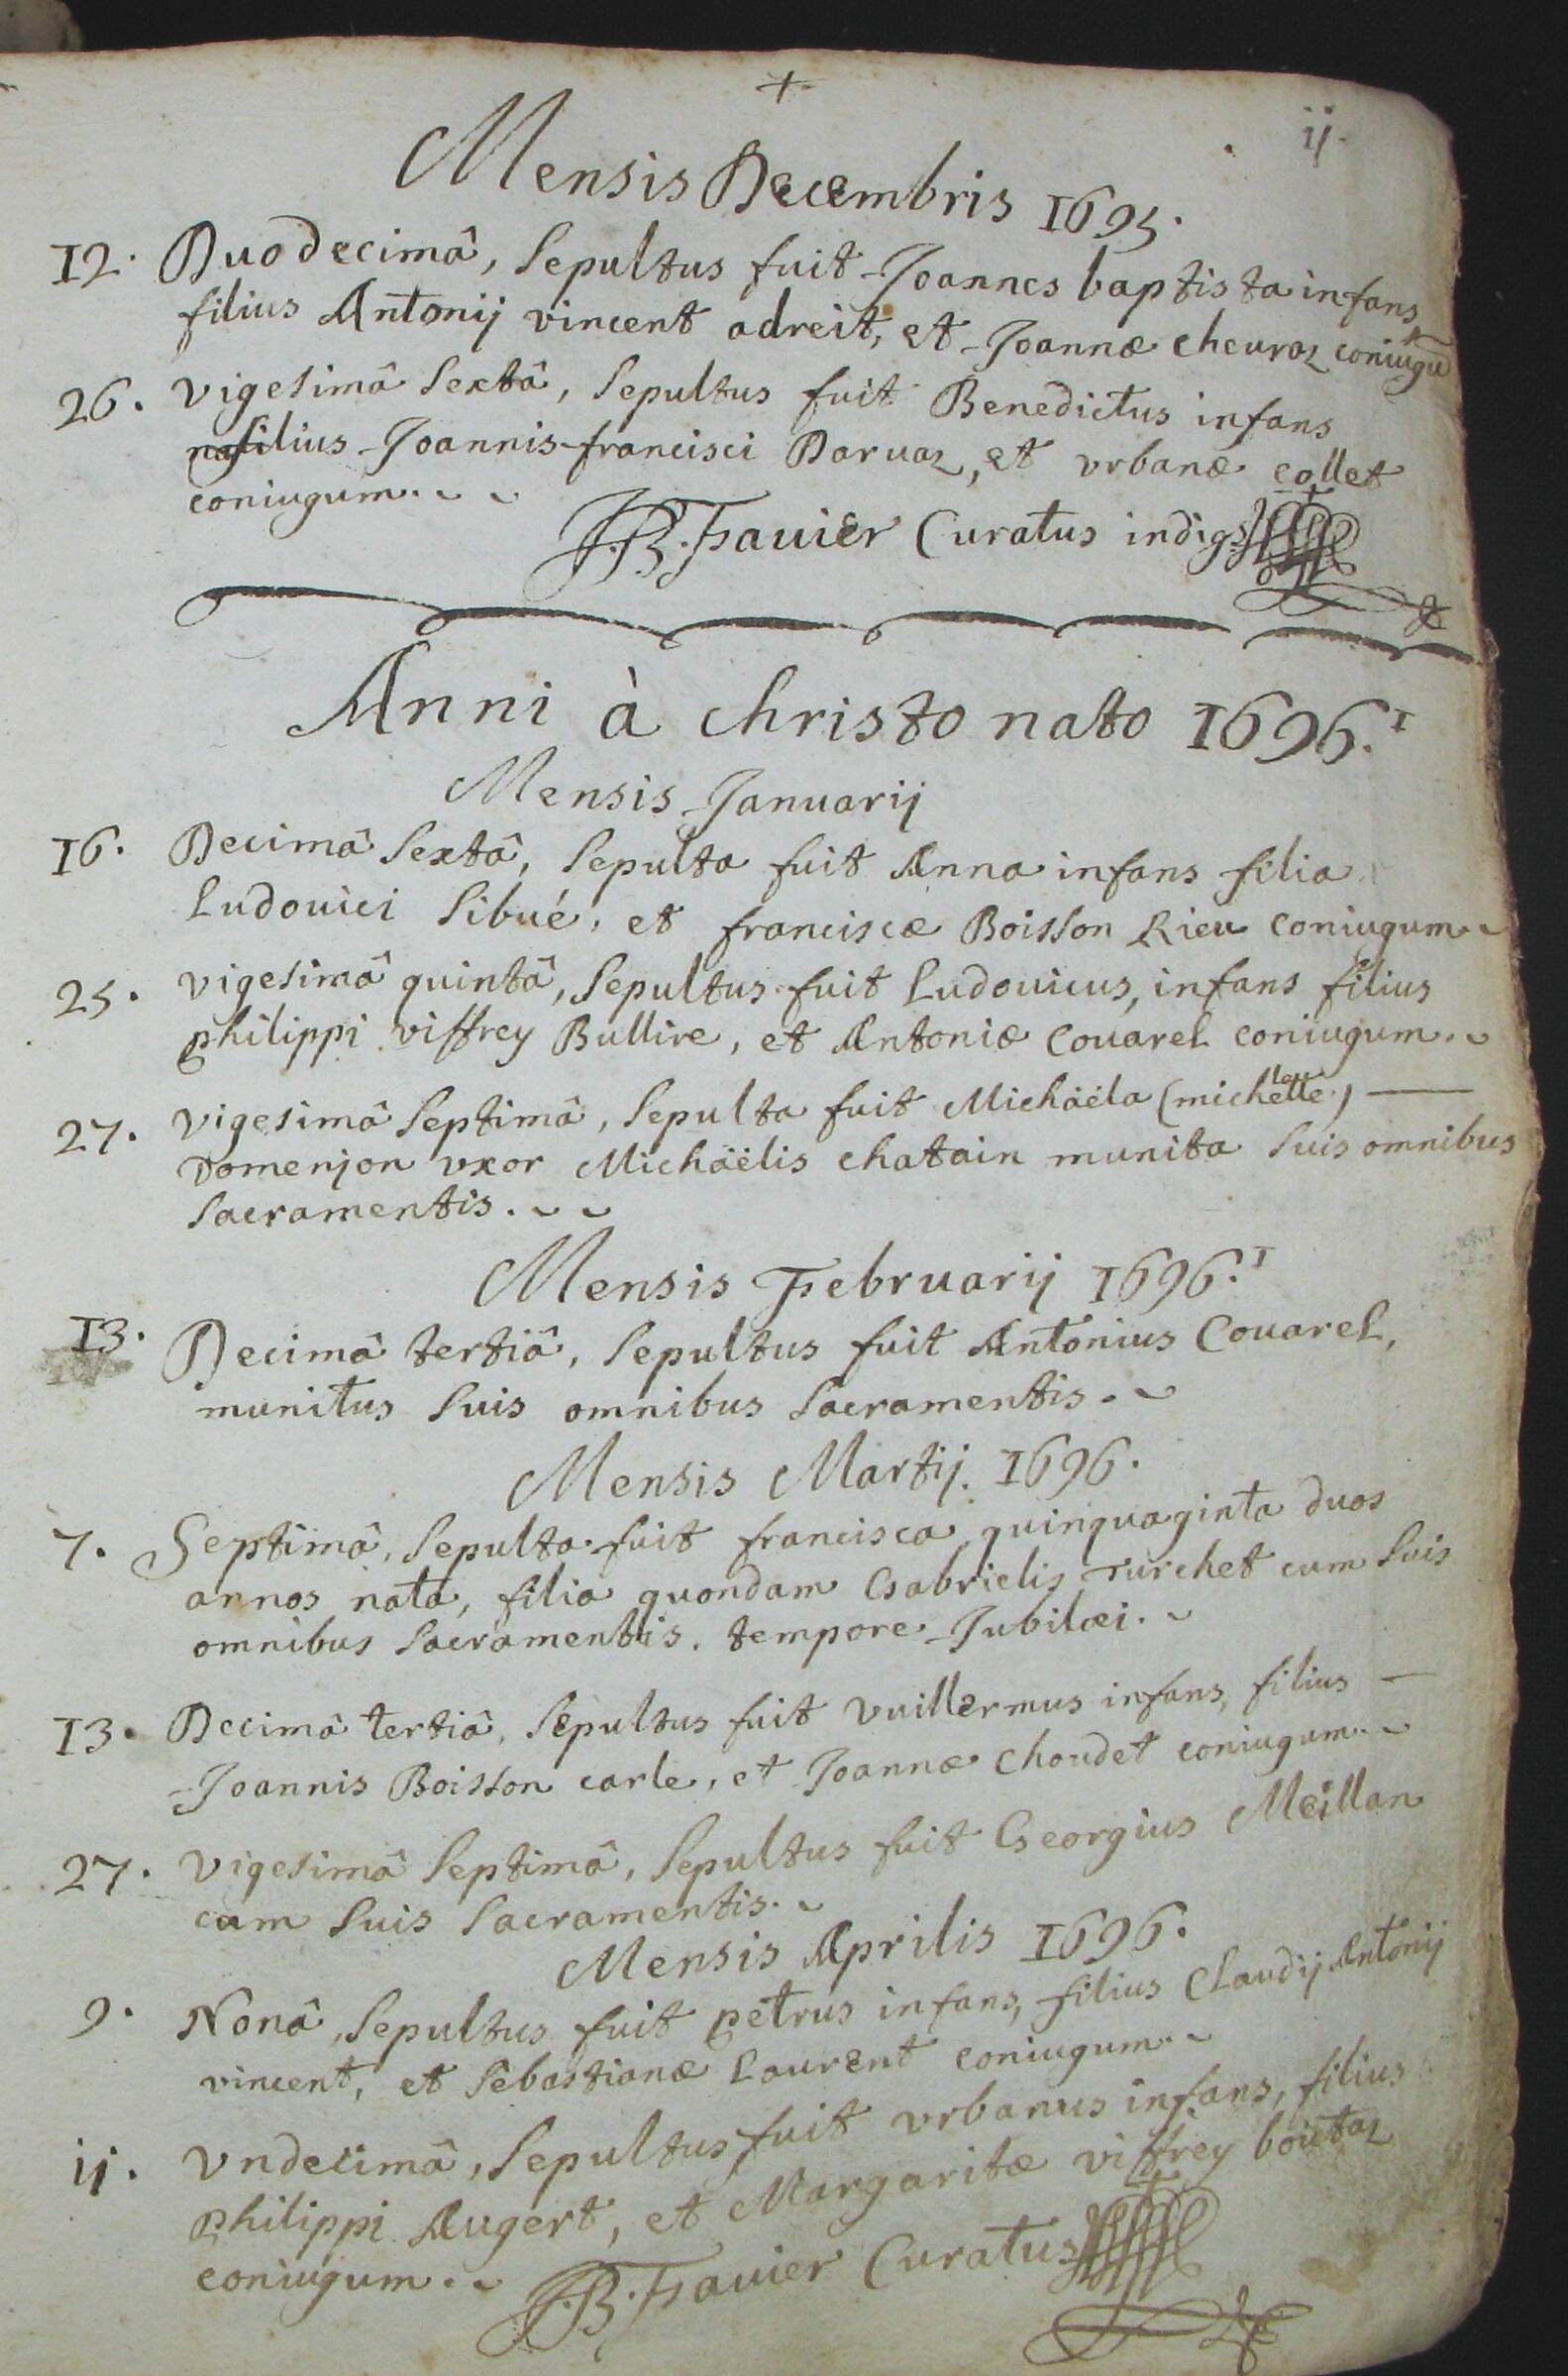 +
ij.
Mensis Decembris 1695.
12. Duodecimâ, sepultus fuit Joannes baptista infans
filius Antonij vincent adreit, et Joannæ cheuraz coniugū
26. vigesimâ sextâ, sepultus fuit Benedictus infans
filius Joannis-francisci Daruaz, et vrbanæ collet
coniugum.
JB. Fauier Curatus indigs
Anni à christo nato 1696.
Mensis Januarij
16. Decimâ sextâ, sepulta fuit Anna infans filia
Ludouici sibué, et franciscæ Boisson Rieu coniugum.
25. vigesimâ quintâ, sepultus fuit Ludouicus, infans filius
philippi viffrey Bullire, et Antoniæ Couarel coniugum.
27. vigesimâ septimâ, sepulta fuit Michäëla (michelle)
Domenjon vxor Michäëlis chatain munita suis omnibus
sacramentis.
Mensis Februarij 1696.
13. Decimâ tertiâ, sepultus fuit Antonius Couarel,
munitus suis omnibus sacramentis.
Mensis Martij. 1696.
7. Septimâ, sepulta fuit francisca quinquaginta duos
annos nata, filia quondam Gabrielis Turchet cum suis
omnibus sacramentis. tempore Jubilæi.
13. Decimâ tertiâ, sepultus fuit vuillermus infans, filius
Joannis Boisson carle, et Joannæ choudet coniugum.
27. vigesimâ septimâ, sepultus fuit Georgius Meillan
cum suis sacramentis.
Mensis Aprilis 1696.
9. Nonâ, sepultus fuit petrus infans, filius Claudij Antonij
vincent, et sebastianæ Laurent coniugum.
ij. vndecimâ, sepultus fuit vrbanus infans, filius
philippi Augert, et Margaritæ viffrey boittaz
coniugum.
JB. Fauier Curatus